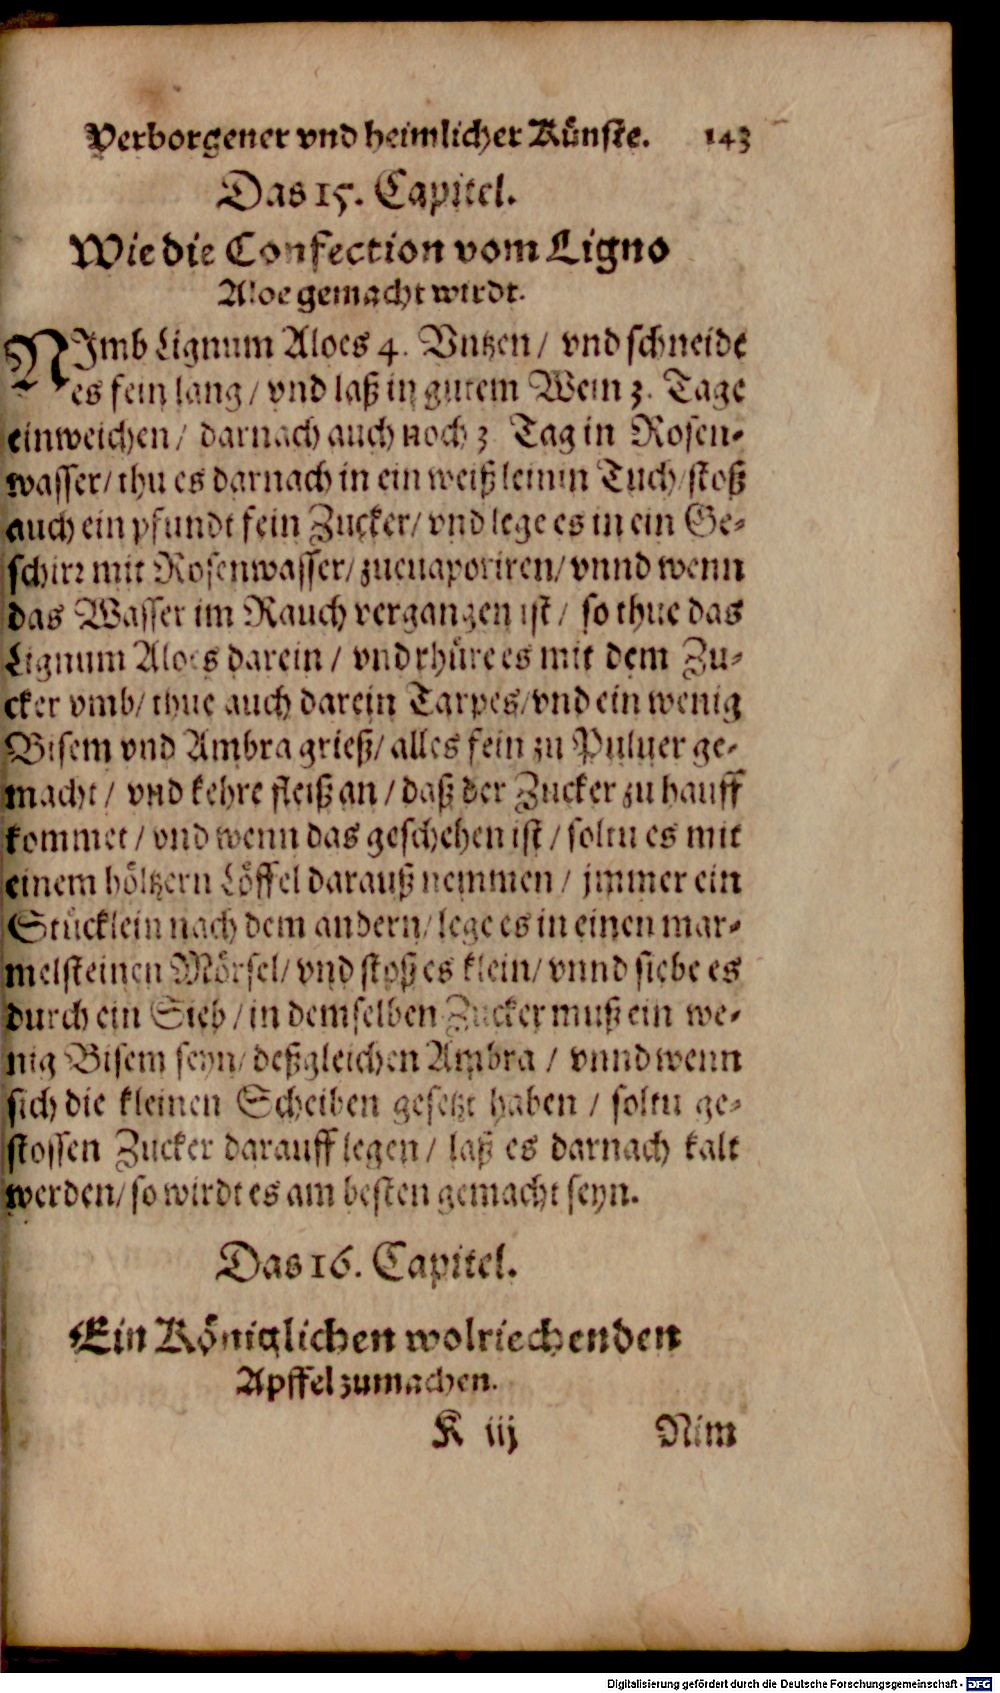 Verborgener vnd heimlicher Künste. 143
Das 15. Capitel.
Wie die Confection vom Ligno
Aloe gemacht wirdt.
NImb Lignum Aloes 4. Vntzen / vnd schneide
es fein lang / vnd laß in gutem Wein 3. Tage
einweichen / darnach auch noch 3 Tag in Rosen-
wasser / thu es darnach in ein weiß leinin Tuch / stoß
auch ein pfundt fein Zucker / vnd lege es in ein Ge-
schirr mit Rosenwasser / zueuaporiren / vnnd wenn
das Wasser im Rauch vergangen ist / so thue das
Lignum Aloes darein / vnd rhüre es mit dem Zu-
cker vmb / thue auch darein Tarpes / vnd ein wenig
Bisem vnd Ambra grieß / alles fein zu Puluer ge-
macht / vnd kehre fleiß an / daß der Zucker zu hauff
kommet / vnd wenn das geschehen ist / soltu es mit
einem höltzern Löffel darauß nemmen / jmmer ein
Stücklein nach dem andern / lege es in einen mar-
melsteinen Mörsel / vnd stoß es klein / vnnd siebe es
durch ein Sieb / in demselben Zucker muß ein we-
nig Bisem seyn / deßgleichen Ambra / vnnd wenn
sich die kleinen Scheiben gesetzt haben / soltu ge-
stossen Zucker darauff legen / laß es darnach kalt
werden / so wirdt es am besten gemacht seyn.
Das 16. Capitel.
Ein Königlichen wolriechenden
Apffel zumachen.
K iij Nim
Digitalisierung gefördert durch die Deutsche Forschungsgemeinschaft - DFG